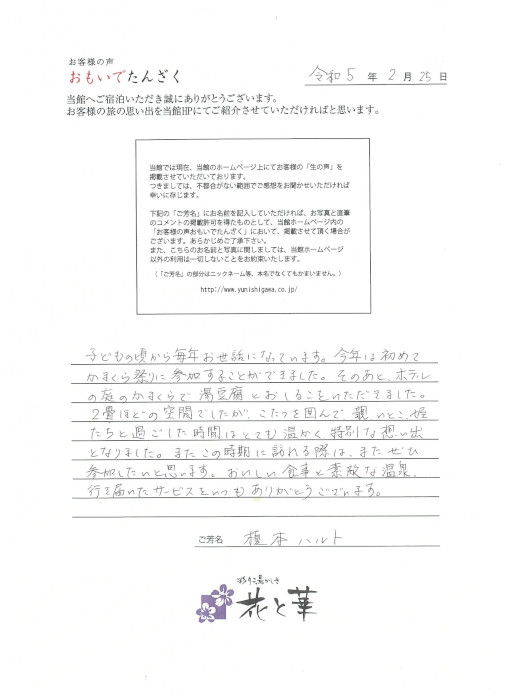 お客様の声
おもいでたんざく
令和5年2月25日
当館へご宿泊いただき誠にありがとうございます。
お客様の旅の思い出を当館HPにてご紹介させていただければと思います。
当館では現在、当館のホームページ上にてお客様の「生の声」を
掲載させていただいております。
つきましては、不都合がない範囲でご感想をお聞かせいただければ
幸いに存じます。
下記の「ご芳名」にお名前を記入していただければ、お写真と直筆
のコメントの掲載許可を得たものとして、当館ホームページ内の
「お客様の声おもいでたんざく」において、掲載させて頂く場合が
ございます。あらかじめご了承下さい。
また、こちらのお名前と写真に関しましては、当館ホームページ
以外の利用は一切しないことをお約束いたします。
（「ご芳名」の部分はニックネーム等、本名でなくてもかまいません。）
http://www.yunishigawa.co.jp/
子どもの頃から毎年お世話になっています。今年は初めて
かまくら祭りに参加することができました。そのあと、ホテル
の庭のかまくらで湯豆腐とおしるこをいただきました。
2畳ほどの空間でしたが、こたつを囲んで、親、いとこ、姪
たちと過ごした時間はとても温かく特別な想い出
となりました。またこの時期に訪れる際は、またぜひ
参加したいと思います。おいしい食事と素敵な温泉、
行き届いたサービスをいつもありがとうございます。
ご芳名 榎本ハルト
花と華